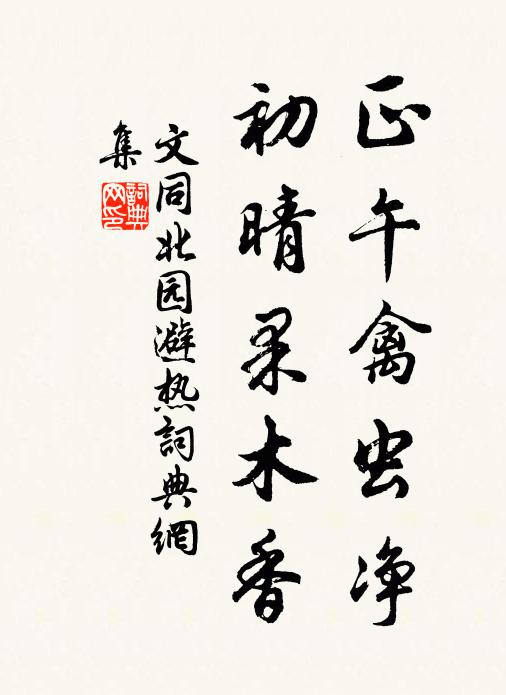 正午禽虫净
初晴果木香
文同北园避热詞典網
集
詞典网印